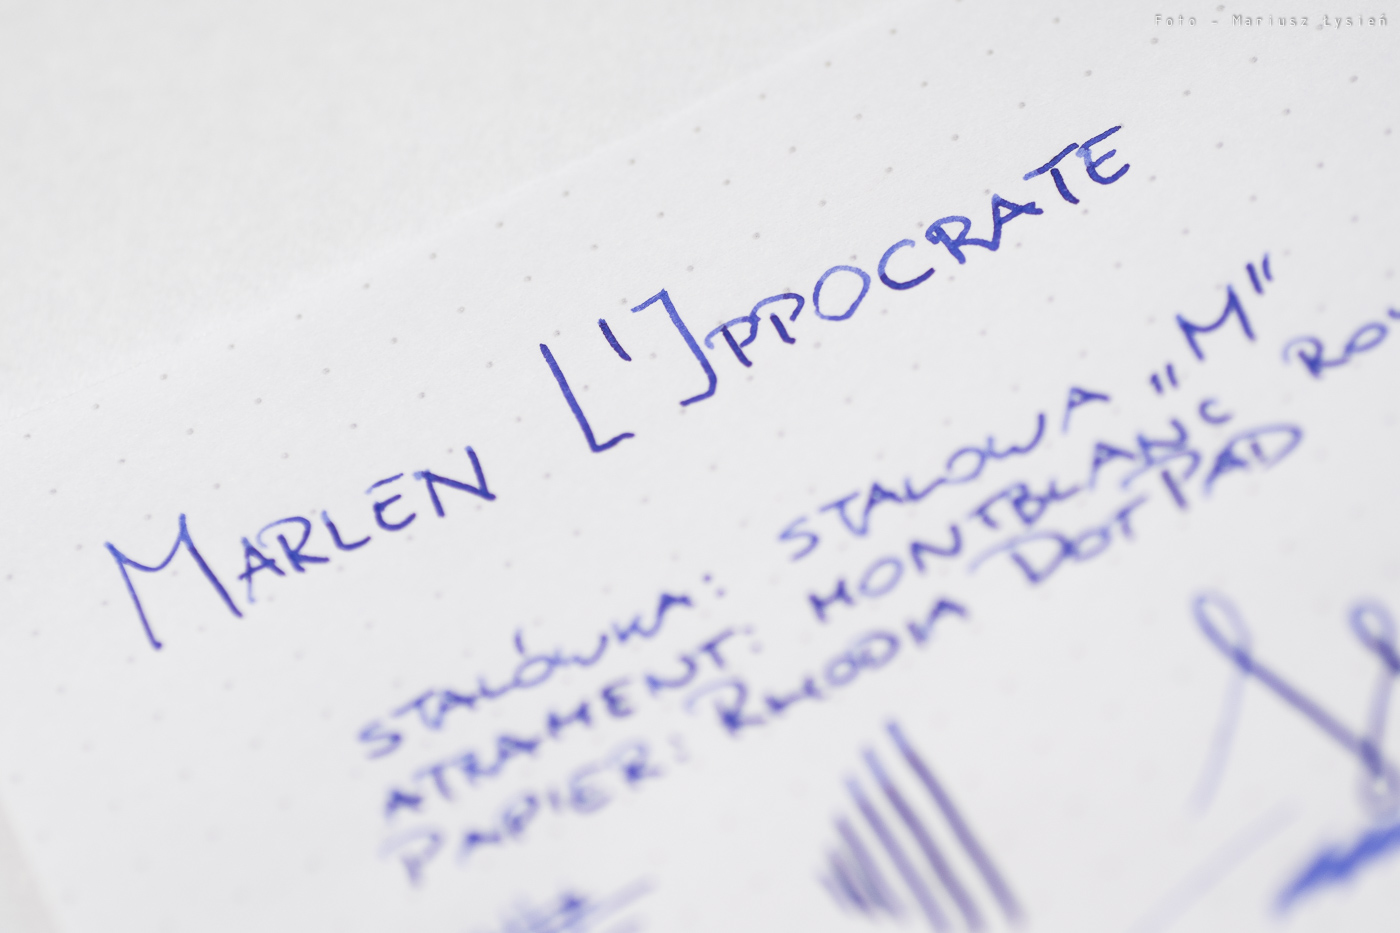 Foto - Mariusz Łysień
MARLEN L'IPPOCRATE
STALÓWKA: STALOWA „M"
ATRAMENT: MONTBLANC
PAPIER: RHODIA DOT PAD